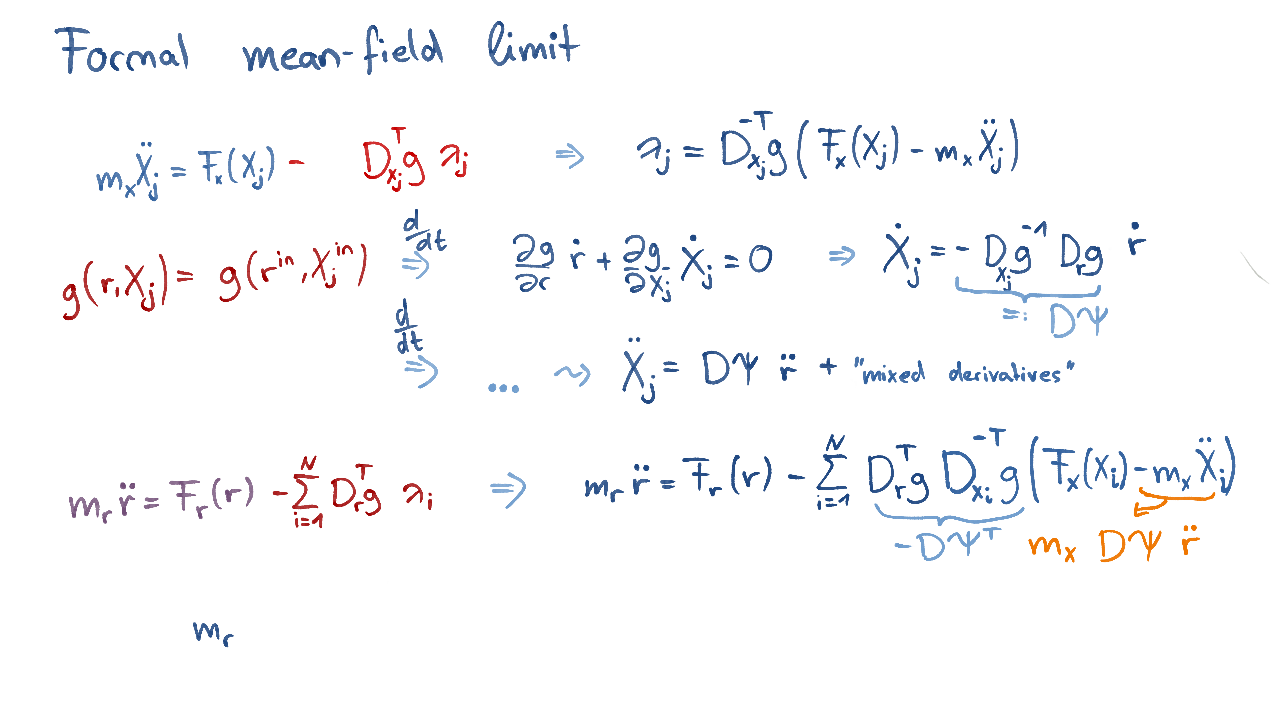 Formal mean-field limit
m_x Ẍ_j = F_x(X_j) - D_{x_j}^T g λ_j ⇒ λ_j = D_{x_j}^{-T} g (F_x(X_j) - m_x Ẍ_j)
g(r, X_j) = g(r^{in}, X_j^{in}) d/dt ⇒ ∂g/∂r ṙ + ∂g/∂X_j Ẋ_j = 0 ⇒ Ẋ_j = - D_{x_j} g^{-1} D_r g ṙ
=: DΨ
d/dt ⇒ ... ⇝ Ẍ_j = DΨ r̈ + "mixed derivatives"
m_r r̈ = F_r(r) - ∑_{i=1}^N D_r^T g λ_i ⇒ m_r r̈ = F_r(r) - ∑_{i=1}^N D_r^T g D_{x_i}^{-T} g (F_x(X_i) - m_x Ẍ_i)
-DΨ^T m_x DΨ r̈
m_r